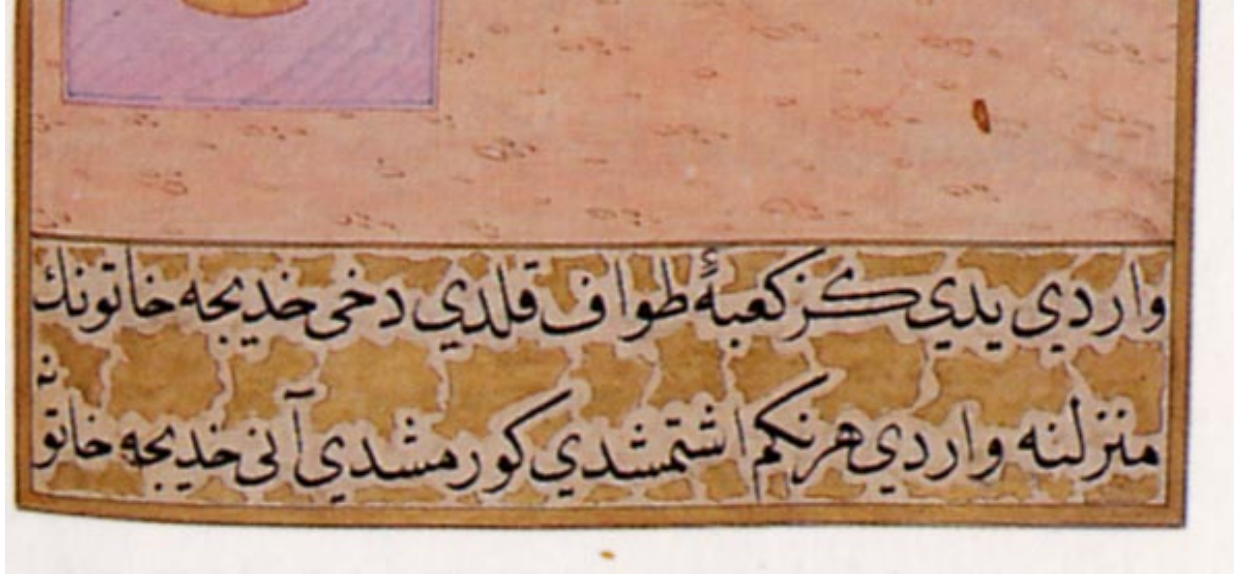 واردي يدي كز كعبهٔ طواف قلدي دخى خديجه خاتونك
منزلنه واردي هرنكم اشتمشدي كورمشدي آنى خديجه خاتو